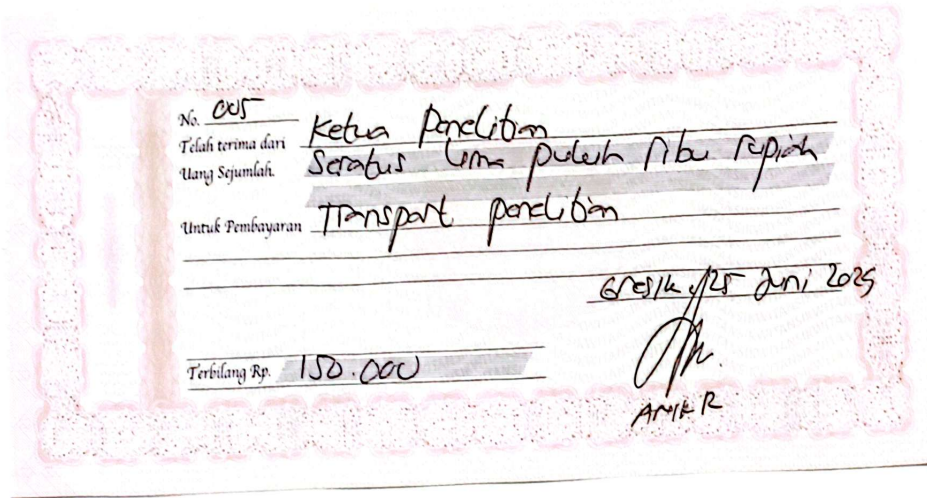 No. 005
Telah terima dari Ketua Penelitian
Uang Sejumlah. Seratus lima puluh ribu rupiah
Untuk Pembayaran Transport penelitian
Gresik, 25 Juni 2025
Terbilang Rp. 150.000
ANIK R